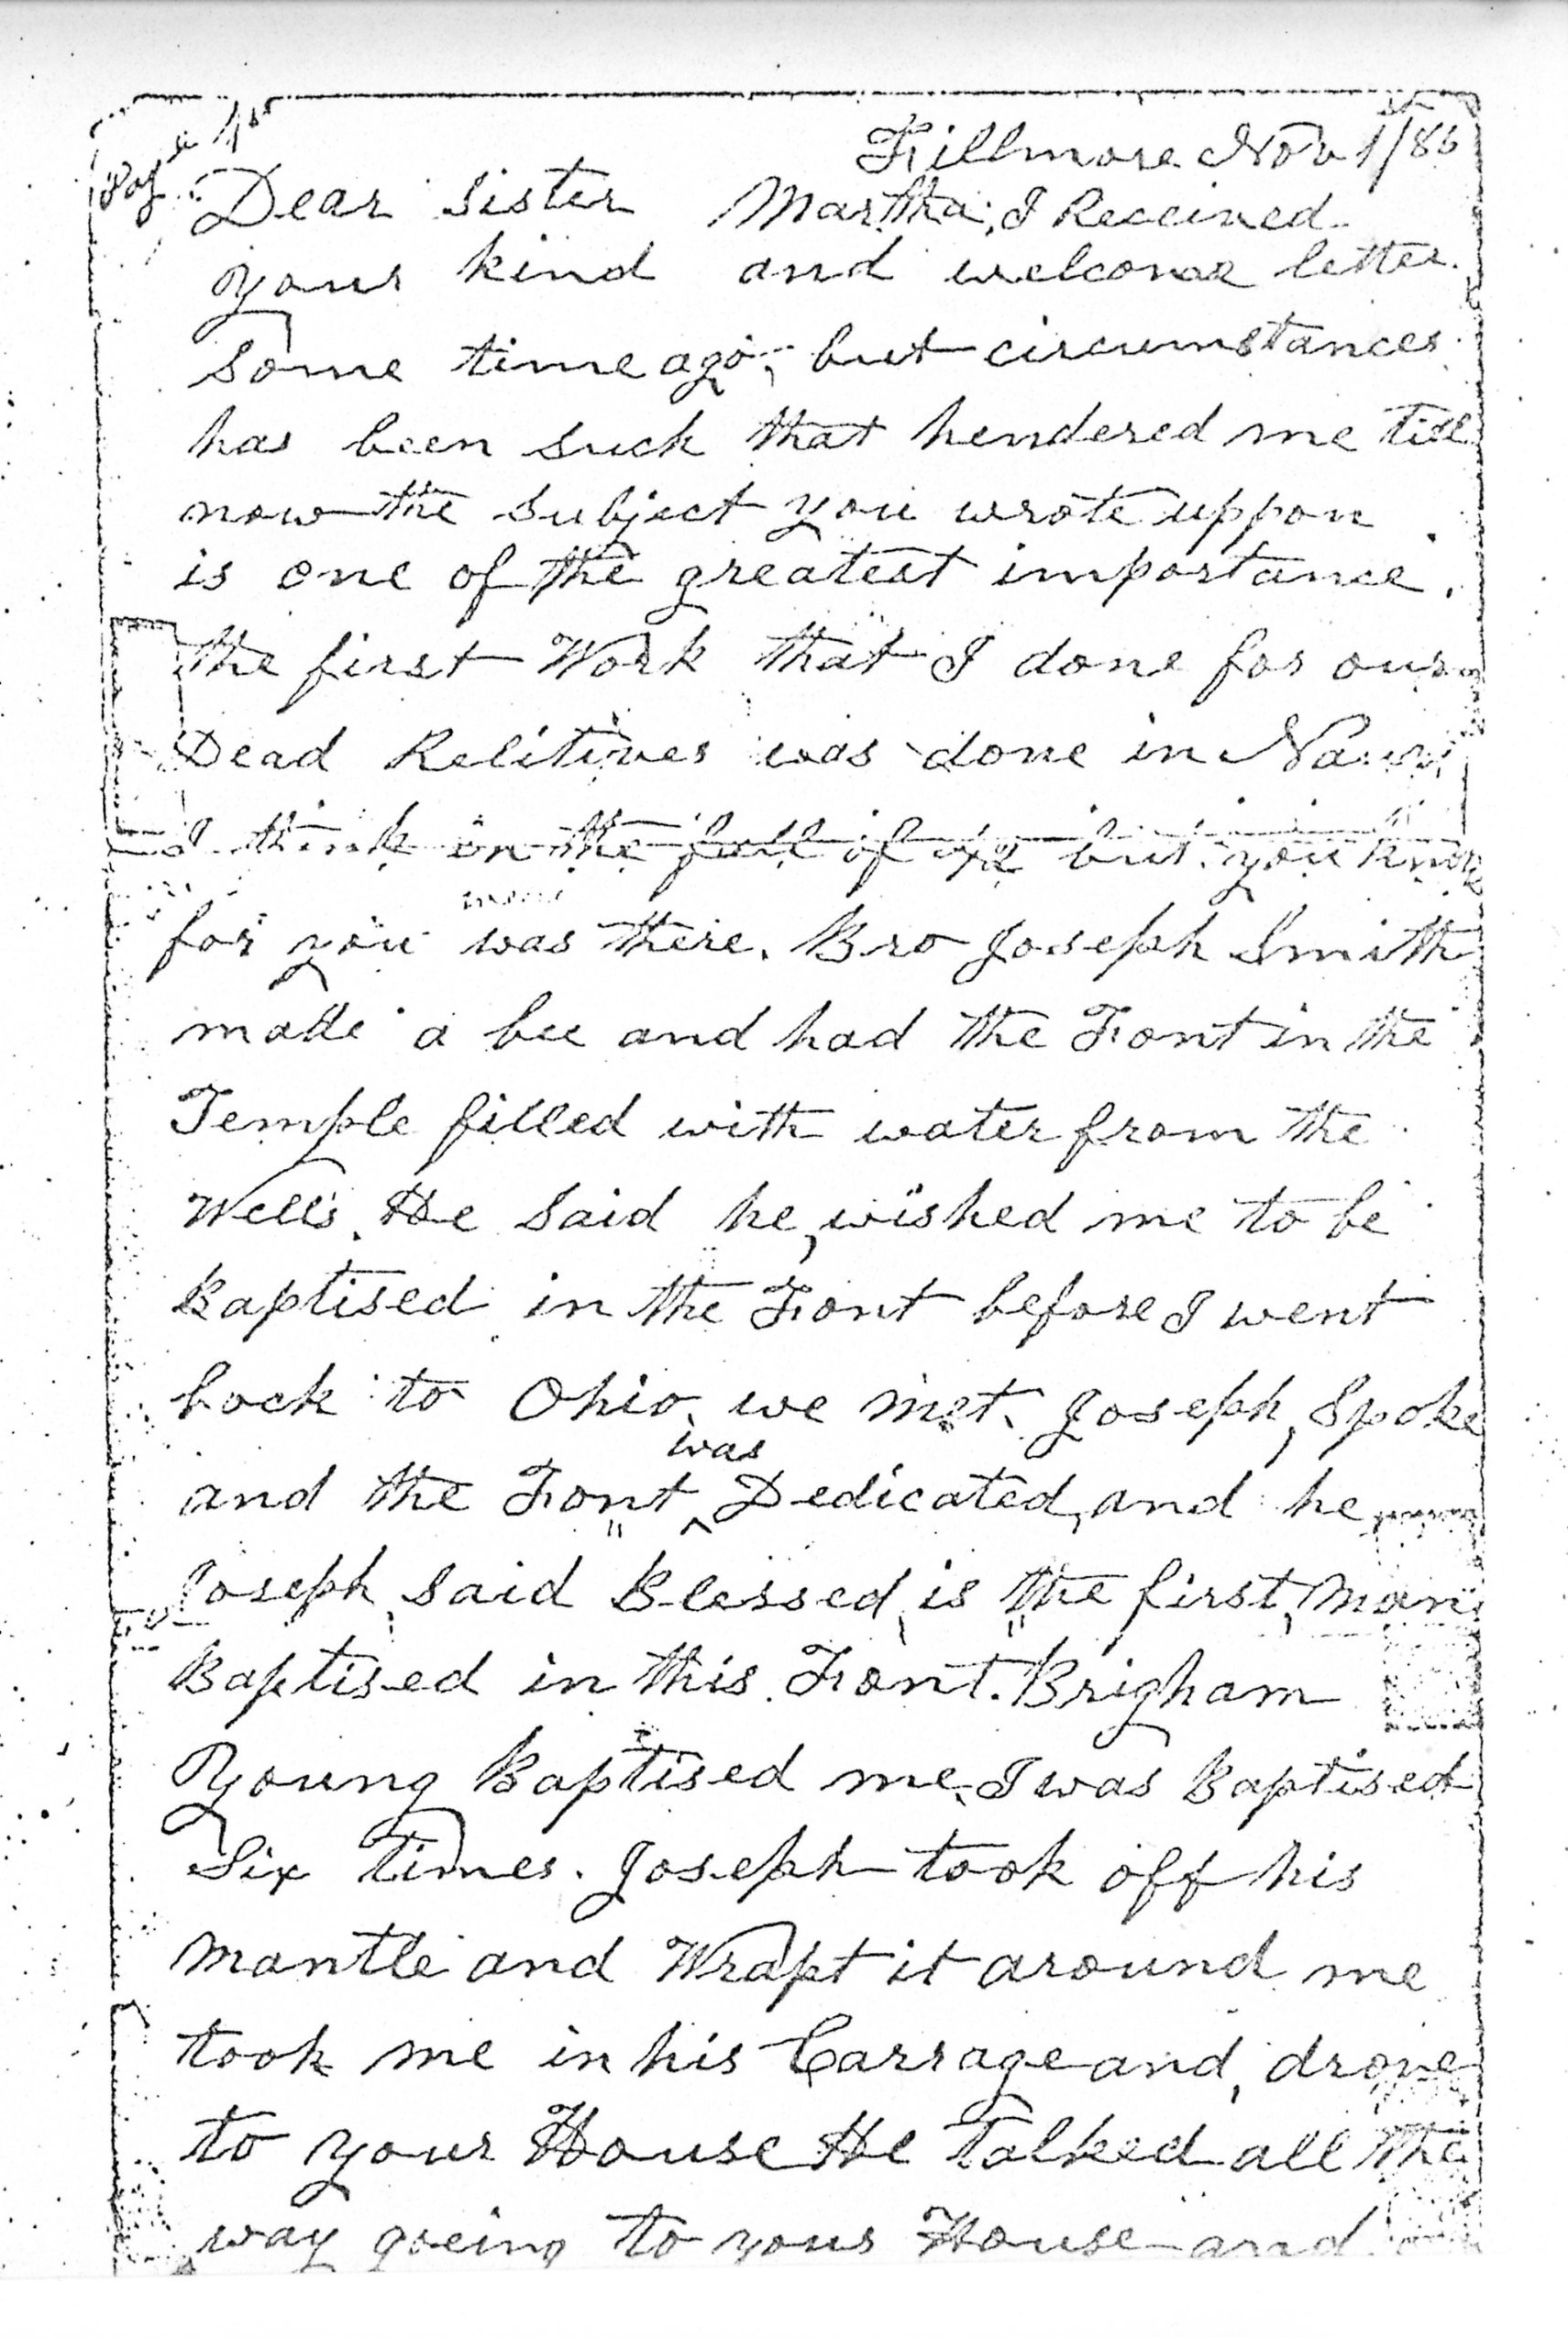 Page 1st
Fillmore Nov 1st/86
Dear Sister Martha, I Received
your kind and welcome letter
Some time ago, but circumstances
has been such that hendered me till
now the subject you wrote uppon
is one of the greatest importance.
the first Work that I done for our
Dead Relitives was done in
I think in the fall of but you know
for you was there. Bro Joseph Smith
made a bee and had the Font in the
Temple filled with water from the
Wells. He said he, wished me to be
Baptised in the Font before I went
back to Ohio. we met. Joseph, Spoke
and the Font ^was Dedicated, and he
Joseph, said Blessed, is "the first, man
Baptised in this Font. Brigham
Young Baptised me. I was Baptised
Six times. Joseph took off his
mantle and Wrapt it around me
took me in his Carrage and, drove
to your House He Talked all the
way goeing to your House and